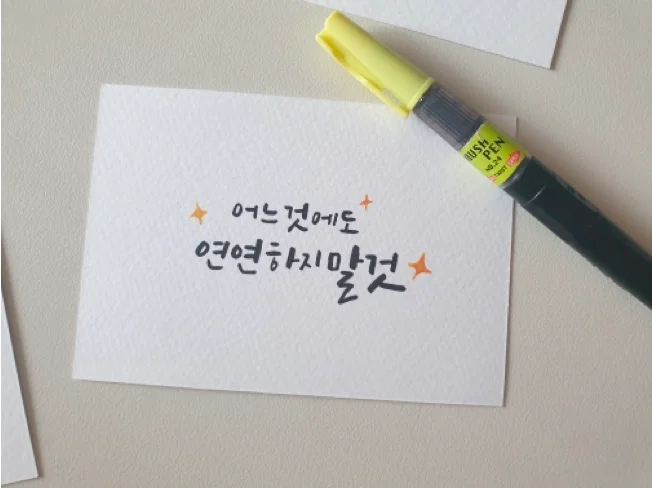 어느것에도
연연하지말것
BRUSH
PEN
NO.24